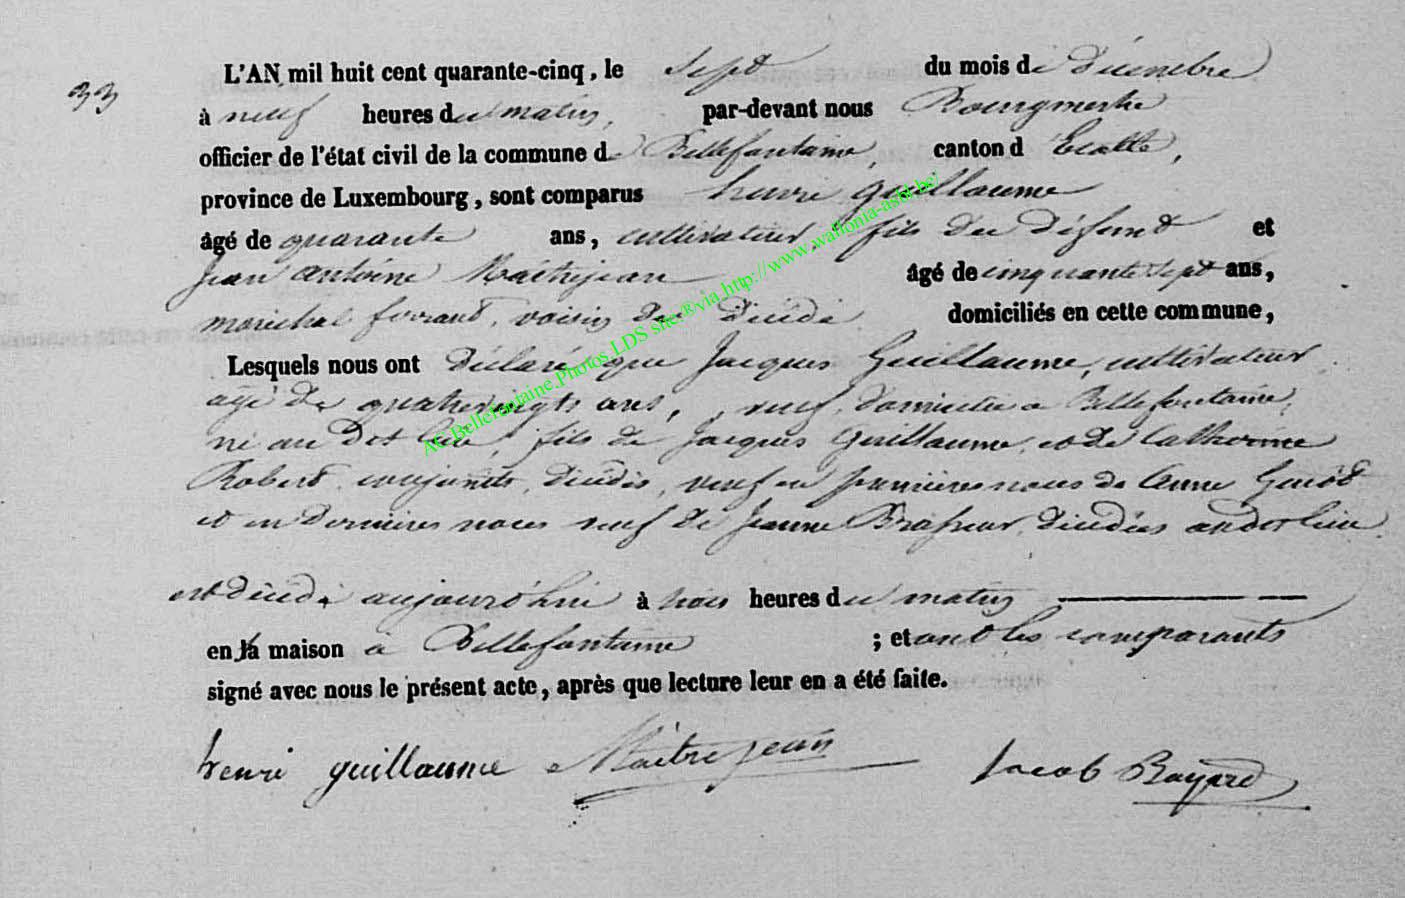 33
L'AN mil huit cent quarante-cinq, le sept du mois de décembre
à neuf heures du matin, par-devant nous Bourgmestre
officier de l'état civil de la commune de Bellefontaine, canton d' Etalle,
province de Luxembourg, sont comparus henri guillaume
âgé de quarante ans, cultivateur, fils du défunt et
Jean antoine Maitrejean âgé de cinquante sept ans,
maréchal ferrant, voisin du décédé domiciliés en cette commune,
Lesquels nous ont déclaré que Jacques Guillaume, cultivateur
agé de quatrevingts ans, veuf, domicilié à Bellefontaine,
né au dit lieu, fils de Jacques Guillaume, et de Catherine
Robert, conjoints, décédés, veuf en premières noces de Anne
et en dernières noces veuf de Jeanne Brasseur, décédées audit lieu
est décédé aujourd'hui à trois heures du matin
en la maison à Bellefontaine ; et ont les comparants
signé avec nous le présent acte, après que lecture leur en a été faite.
henri guillaume Maitrejean Jacob Bayard
AC.Bellefontaine.Photos.LDS site.®via.http://www.wallonia-asbl.be/